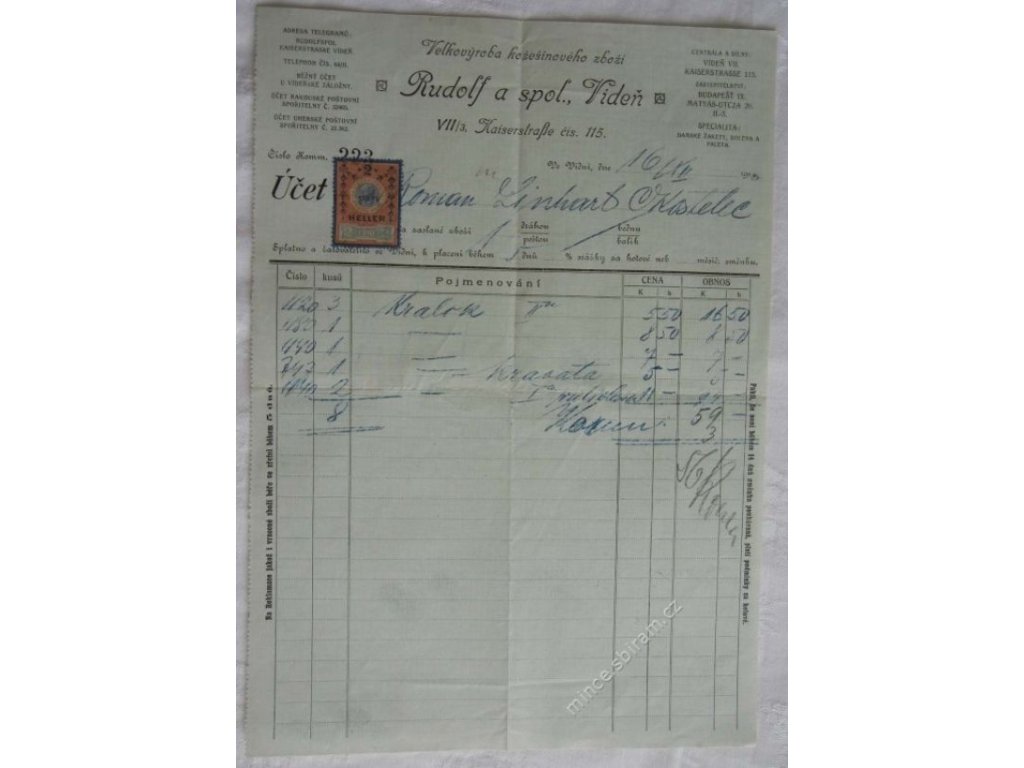 ADRESA TELEGRAMŮ:
RUDOLFSPOL
KAISERSTRASSE VÍDEŇ
TELEFON ČÍS.
BĚŽNÝ ÚČET
U VÍDEŇSKÉ ZÁLOŽNY.
ÚČET RAKOUSKÉ POŠTOVNÍ
SPOŘITELNY Č.
ÚČET UHERSKÉ POŠTOVNÍ
SPOŘITELNY ČÍS.
Velkovýroba kožešinového zboží
Rudolf a spol., Vídeň
VII/3, Kaiserstraße čís. 115.
CENTRÁLA A DÍLNY:
VÍDEŇ VII.
KAISERSTRASSE 115.
ZASTUPITELSTVÍ:
BUDAPEŠT IX.
MATYAS-UTCZA 20.
II-3.
SPECIALITA:
DÁMSKÉ ŽAKETY, BOLERA A
PALETA.
Číslo Komm. 223
Ve Vídni, dne 16/XII
Účet
2
HELLER
Roman Linhart Č Kostelec
za zaslané zboží 1 dráhou bednu
poštou balík
Splatno a žalovatelno ve Vídni, k placení během dnů % srážky za hotové neb měsíč. směnku.
Číslo kusů Pojmenování CENA OBNOS
K h K h
3 Kralok 5 50 16 50
1 — 8 50 8 50
1 — 7 — 7 —
1 — kravata 5 —
2 —
8 Korun 59
3
56
Na Reklamace jakož i vracené zboží béře se zřetel během 8 dnů.
Pakli, že není během 14 dnů směnka poukázaná, platí podmínky za hotové.
mince.sbiram.cz